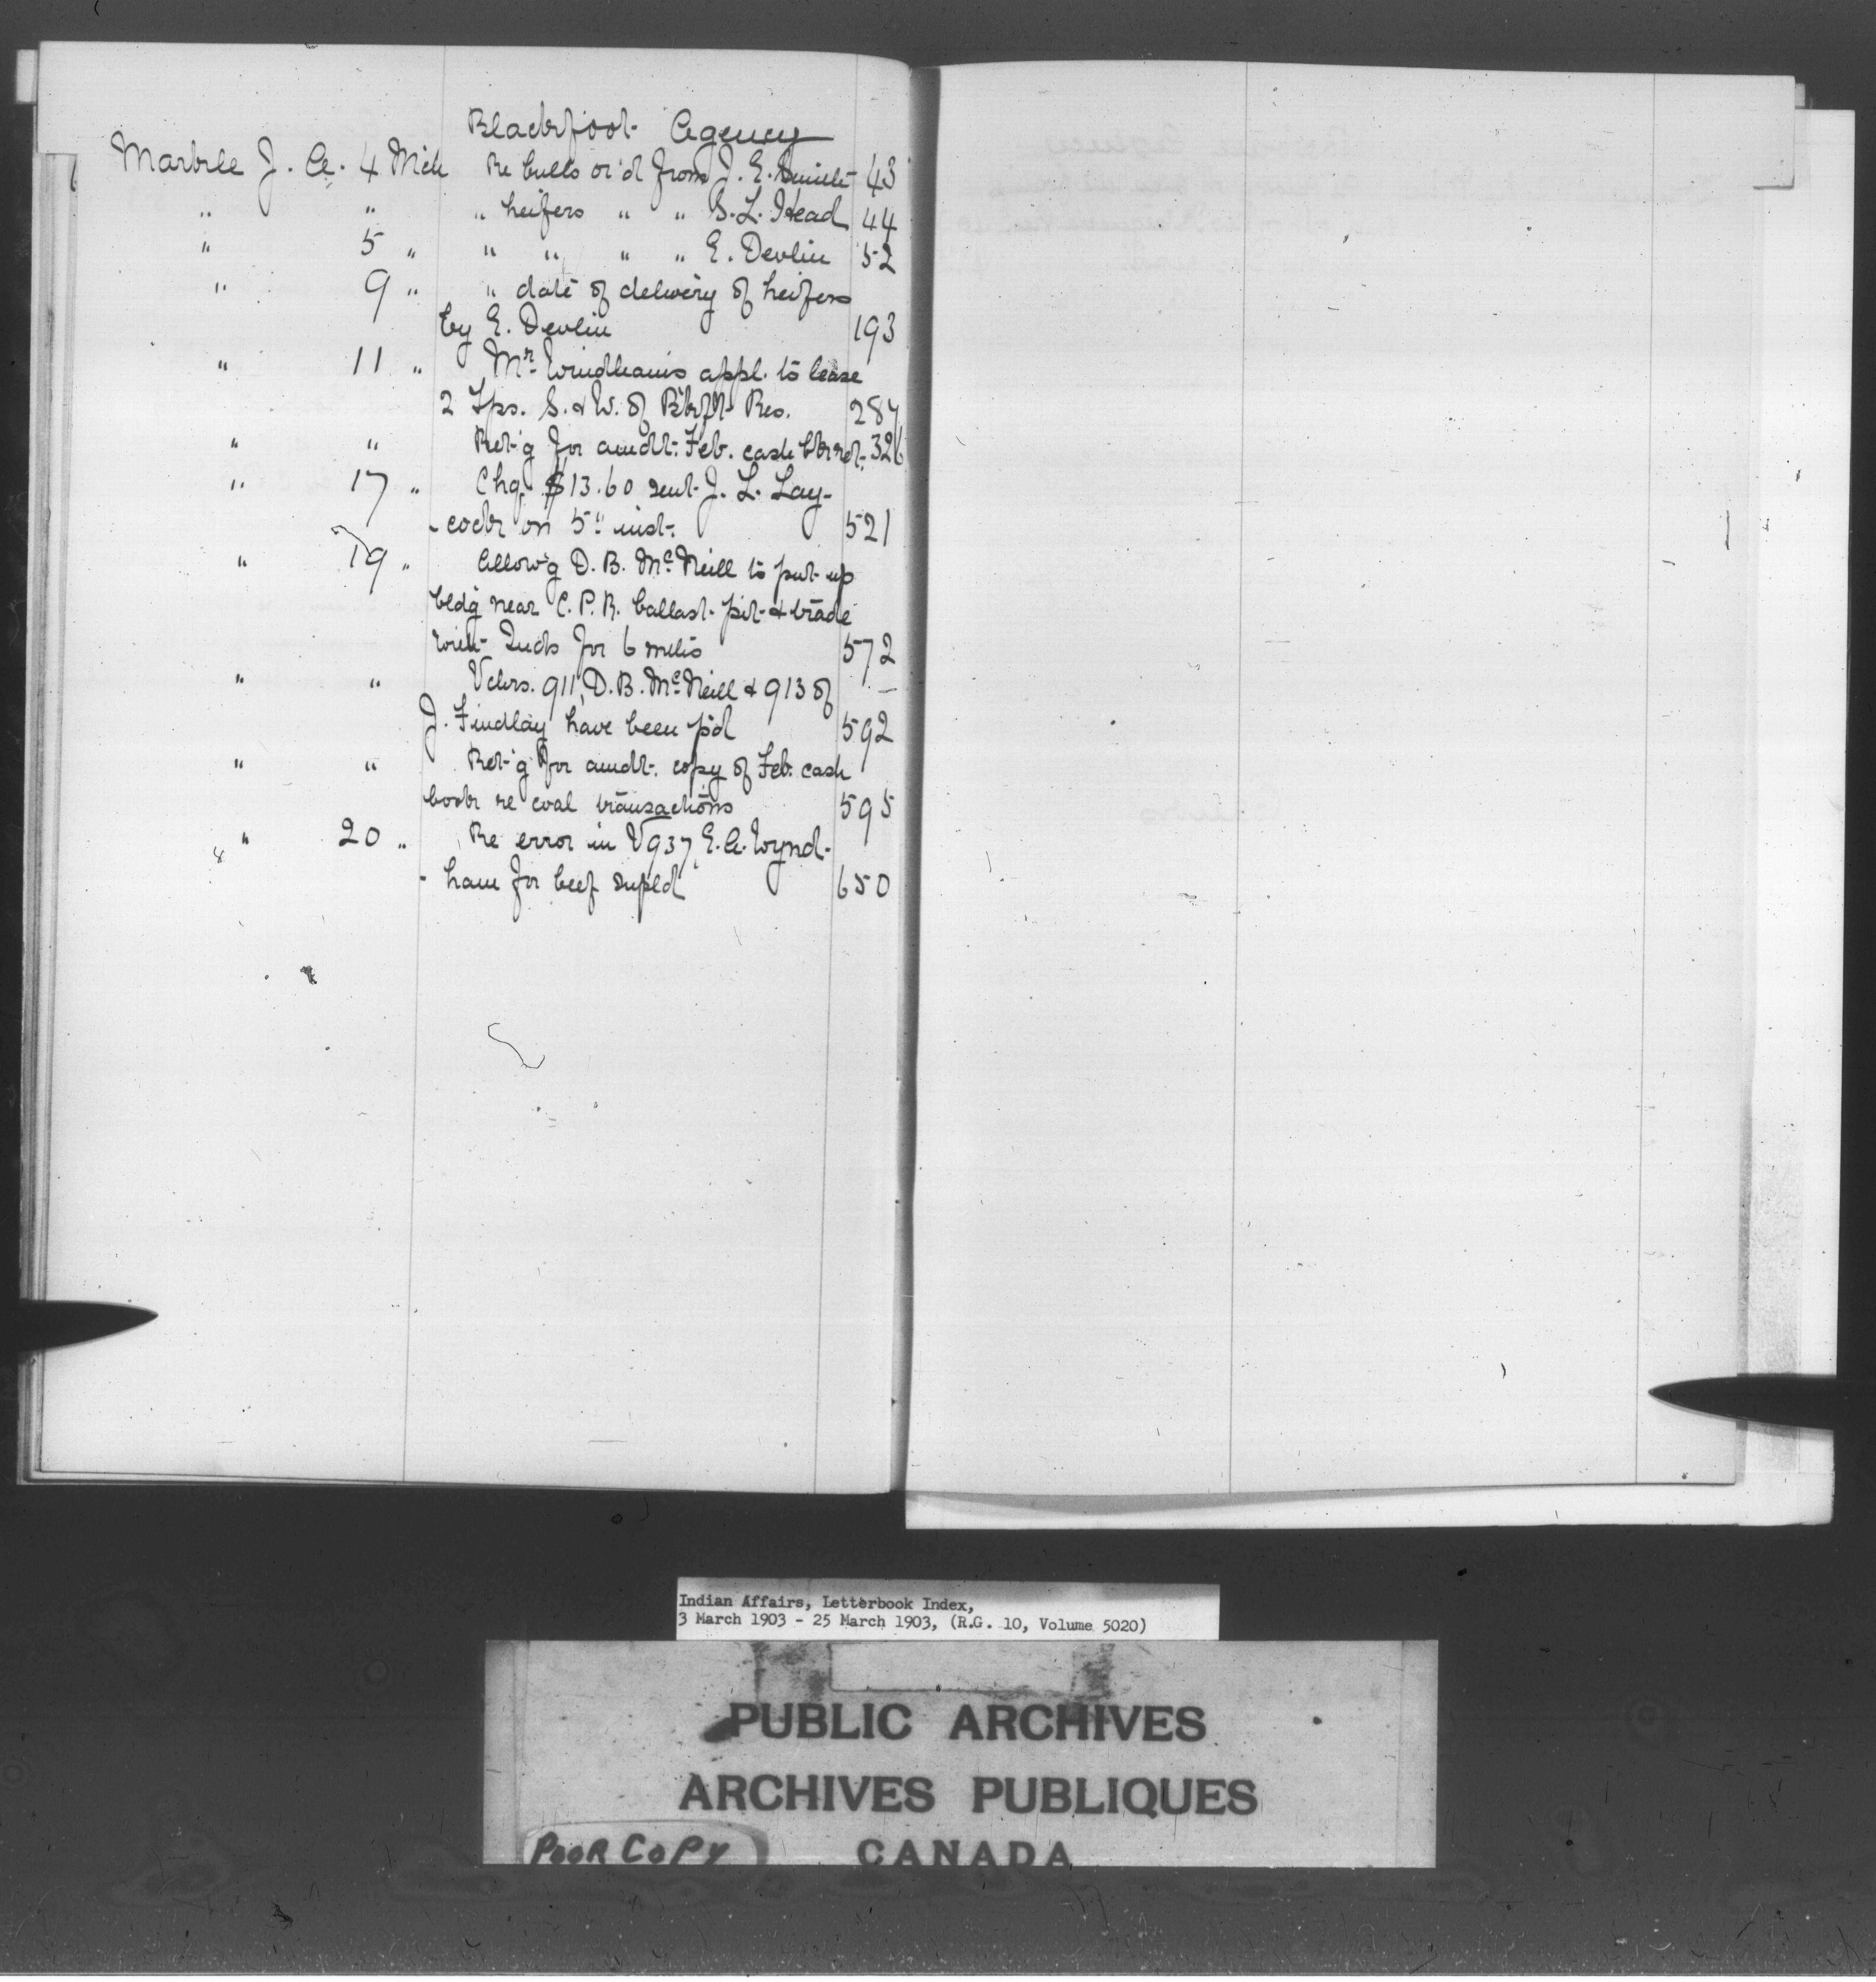 Blackfoot Agency
Markle J. A. 4 Mch Re bulls or'd from J. E. Smith 43
" " " heifers " " S. L. Head 44
" 5 " " " " " E. Devlin 52
" 9 " " date of delivery of heifers
by E. Devlin 193
" 11 " Mr. Windham's appl. to lease
2 Tps. S. & W. of Blkft Res. 284
" " Ret'g for amdt. Feb. cash bk ret. 326
" 17 " Chq. $13.60 sent J. L. Lay-
-cock on 5" inst. 521
" 19 " Allow'g D. B. McNeill to put up
bldg near C. P. R. ballast pit & trade
with Inds for 6 mths 572
" " Vchrs. 911, D. B. McNeill & 913 of
J. Findlay have been p'd 592
" " Ret'g for amdt. copy of Feb. cash
book re coal transactions 595
" 20 " Re error in V 937, E. A. Wynd-
-ham for beef supld 650
Indian Affairs, Letterbook Index,
3 March 1903 - 25 March 1903, (R.G. 10, Volume 5020)
PUBLIC ARCHIVES
ARCHIVES PUBLIQUES
POOR COPY CANADA